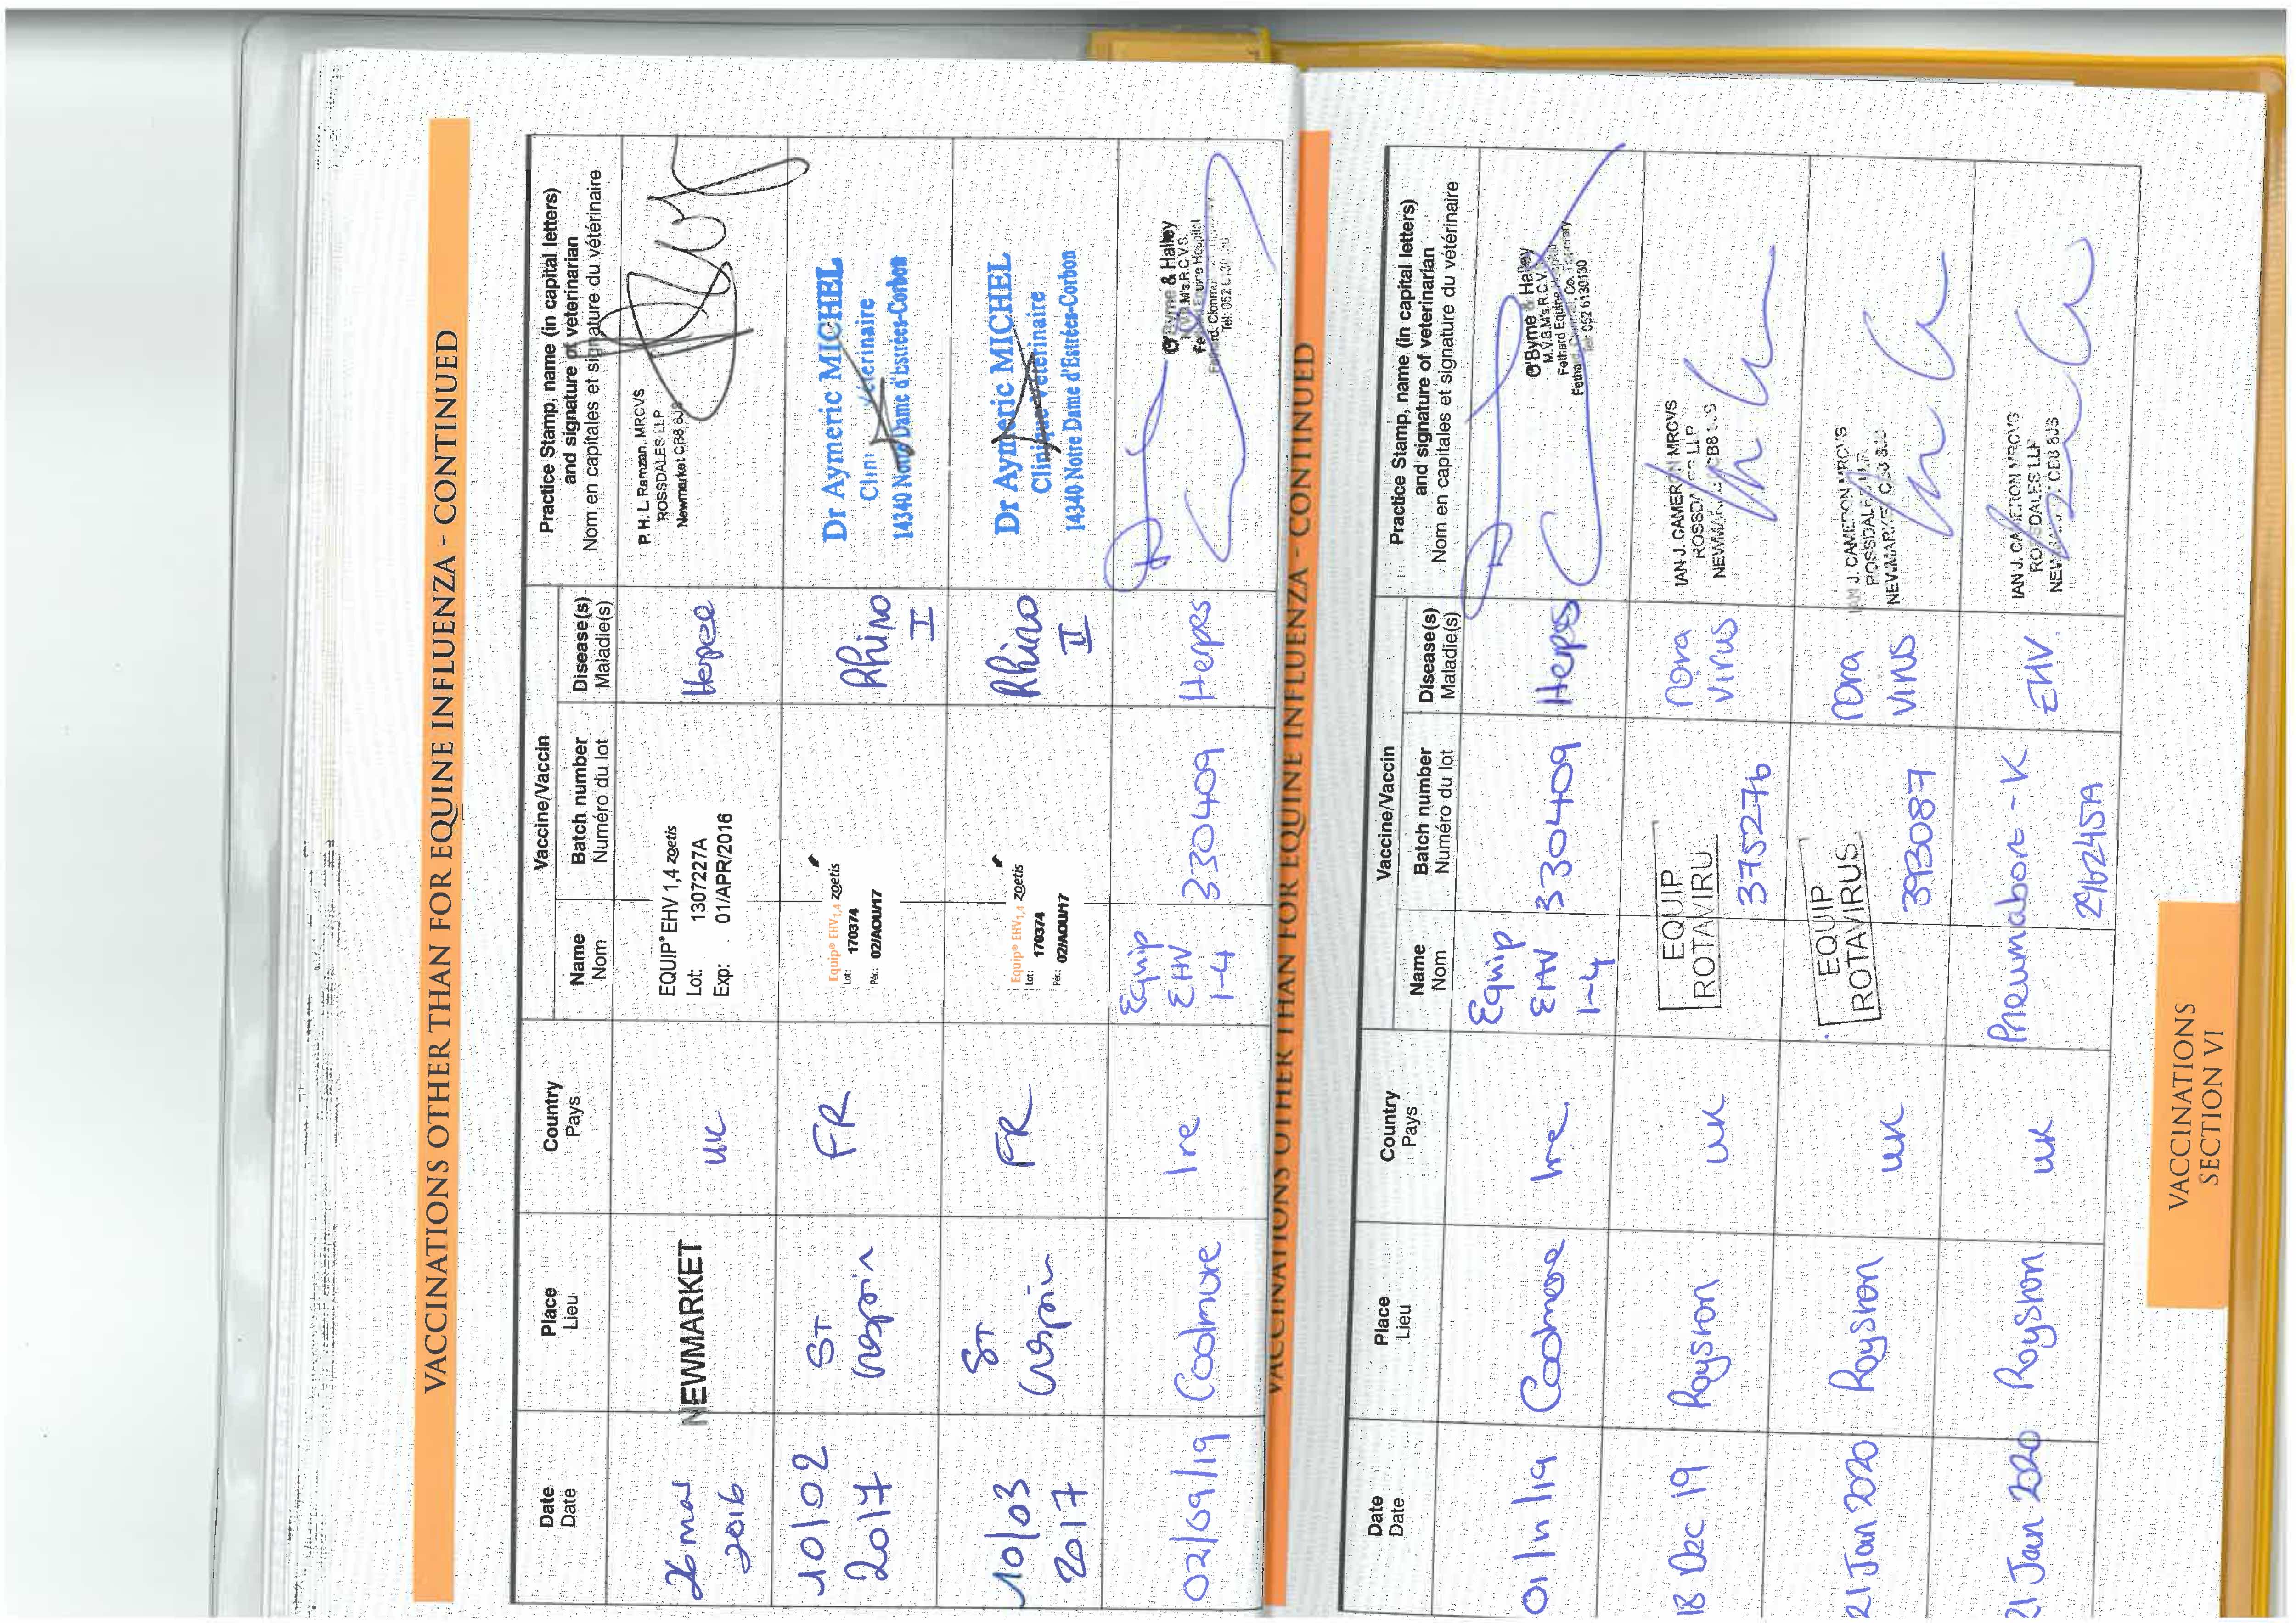 VACCINATIONS OTHER THAN FOR EQUINE INFLUENZA - CONTINUED
Date
Date
Place
Lieu
Country
Pays
Vaccine/Vaccin
Name
Nom
Batch number
Numéro du lot
Disease(s)
Maladie(s)
Practice Stamp, name (in capital letters)
and signature of veterinarian
Nom en capitales et signature du vétérinaire
26 mar
2016
NEWMARKET
UK
EQUIP® EHV 1,4 zoetis
Lot: 1307227A
Exp: 01/APR/2016
Herpes
P. H. L Ramzan, MRCVS
ROSSDALES LLP
Newmarket CB8 8JS
10/02
2017
ST
Crespin
FR
Equip® EHV1,4 zoetis
Lot: 170374
Pér.: 02/AOU/17
Rhino
I
Dr Aymeric MICHEL
Clinique Vétérinaire
14340 Notre Dame d'Estrées-Corbon
10/03
2017
ST
Crespin
FR
Equip® EHV1,4 zoetis
Lot: 170374
Pér.: 02/AOU/17
Rhino
II
Dr Aymeric MICHEL
Clinique Vétérinaire
14340 Notre Dame d'Estrées-Corbon
02/09/19
Coolmore
Ire
Equip
EHV
1-4
330409
Herpes
O'Byrne & Halley
M.V.B.M's.R.C.V.S.
Fethard Equine Hospital
Tel: 052 6130130
VACCINATIONS OTHER THAN FOR EQUINE INFLUENZA - CONTINUED
Date
Date
Place
Lieu
Country
Pays
Vaccine/Vaccin
Name
Nom
Batch number
Numéro du lot
Disease(s)
Maladie(s)
Practice Stamp, name (in capital letters)
and signature of veterinarian
Nom en capitales et signature du vétérinaire
01/11/19
Coolmore
Ire.
Equip
EHV
1-4
330409
Herps
O'Byrne & Halley
M.V.B.M's.R.C.V.S.
Fethard Equine Hospital
Fethard, Clonmel, Co. Tipperary
Tel: 052 6130130
18 Dec 19
Royston
UK
EQUIP
ROTAVIRU
375276
Rora
Virus
IAN J. CAMERON MRCVS
ROSSDALES LLP
NEWMARKET CB8 8JS
21 Jan 2020
Royston
UK
EQUIP
ROTAVIRUS
393087
Rora
Virus
IAN J. CAMERON MRCVS
ROSSDALES LLP
NEWMARKET CB8 8JS
21 Jan 2020
Royston
UK
Pneumabort-K
296245A
EHV.
IAN J. CAMERON MRCVS
ROSSDALES LLP
NEWMARKET CB8 8JS
VACCINATIONS
SECTION VI